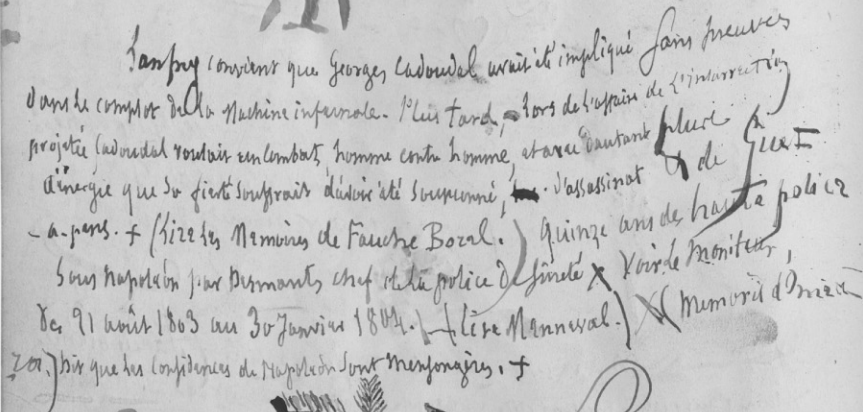 Lanfrey convient que Georges Cadoudal avait été impliqué sans preuves
dans le complot de la Machine infernale. Plus tard, lors de l'affaire de l'insurrection
projetée Cadoudal voulait un combat, homme contre homme, et avec d'autant plus
d'énergie que sa fierté souffrait d'avoir été soupçonné, d'assassinat & de Guet
-a-pens. + (Lire les Memoires de Fauche Borel.) Quinze ans de haute police
sous Napoléon par Desmarets chef de la police de sûreté x Voir le Moniteur,
des 21 août 1803 au 30 Janvier 1804. + (lire Menneval.) x (Memorial
dit que les confidences de Napoléon sont mensongères. +